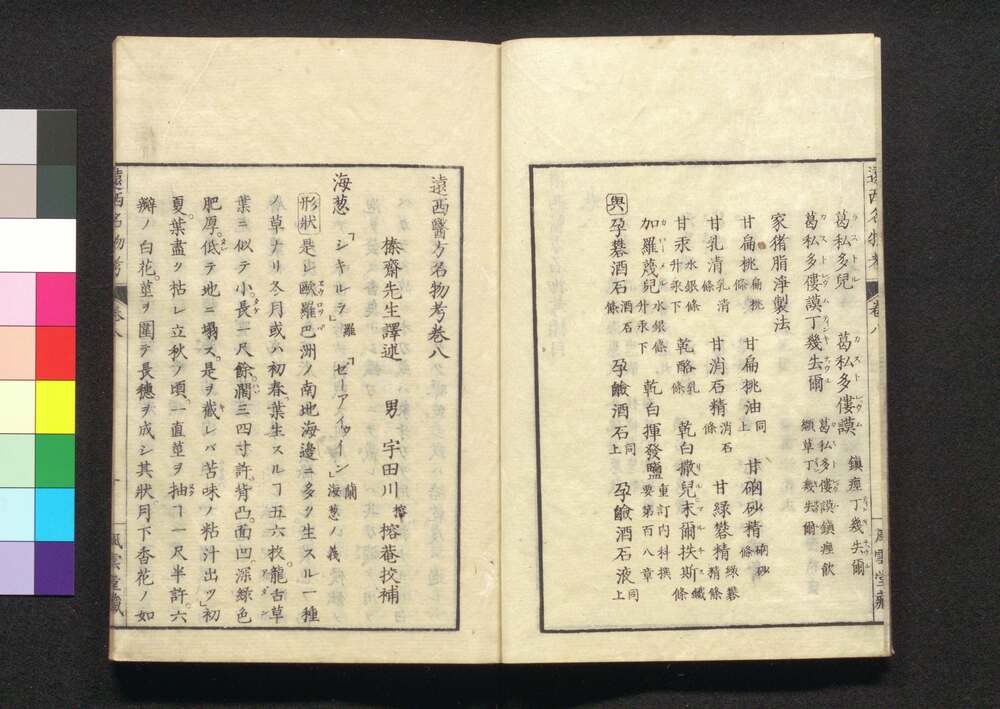 葛私多兒　葛私多僂謨　鎮痙丁幾失爾
葛私多僂謨丁幾去爾　葛私多僂謨鎮痙飲
纈草丁幾失爾
家猪脂淨製法
甘扁桃 扁桃條　甘扁桃油 同上　甘硇砂精 硇砂條
甘乳清 乳清條　甘消石精 消石條　甘綠礬精 綠礬精條
甘汞 水銀條升汞下　乾酪 乳條　乾白撒兒末爾扶斯 纖條
加羅蔑兒 水銀條升汞下　乾白揮發鹽 重訂内科撰要第百八章
輿 孕礬酒石 酒石條　孕鹼酒石 同上　孕鹼酒石液 同上
遠西名物考 卷八　風雲堂藏
遠西醫方名物考卷八
榛齋先生譯述　男　宇田川 榕 榕菴挍補
海葱 「シキルラ」羅 「ゼーアイウイン」蘭 海葱ノ義
形狀 是レ歐羅巴洲ノ南地海邊ニ多ク生スル一種
ノ草ナリ冬月或ハ初春葉生スルヿ五六枚龍舌草
葉ニ似テ小長一尺餘濶三四寸許背凸面凹深綠色
肥厚低テ地ニ塌ス是ヲ截レバ苦味ノ粘汁出ツ初
夏葉盡ク枯レ立秋ノ頃一直莖ヲ抽ヿ一尺半許六
瓣ノ白花莖ヲ圍テ長穗ヲ成シ其狀月下香花ノ如
遠西名物考 卷八　一　風雲堂藏